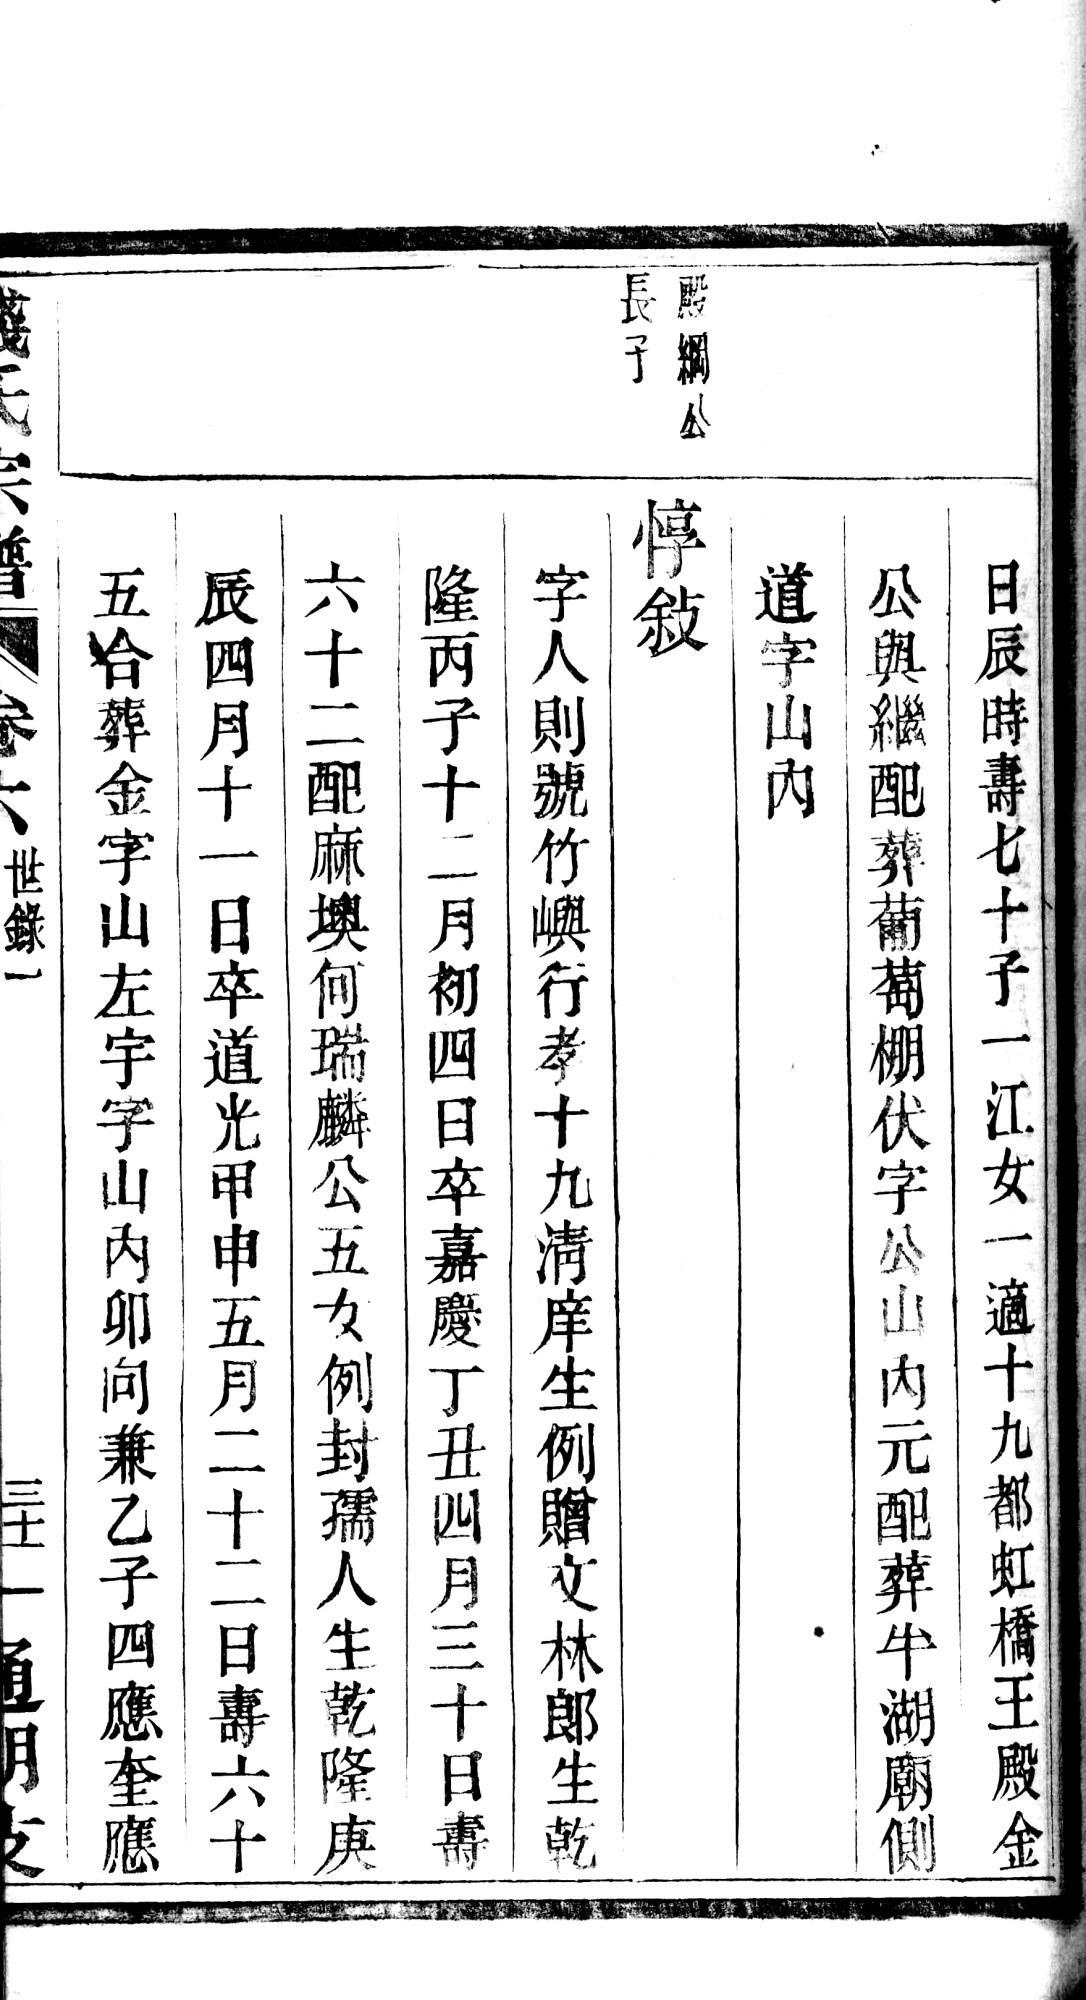 日辰時壽七十子一江女一適十九都虹橋王殿金
公與繼配葬葡萄棚伏字公山內元配葬牛湖廟側
道字山內
殿綱公
長子
惇敍
字人則號竹嶼行孝十九清庠生例贈文林郎生乾
隆丙子十二月初四日卒嘉慶丁丑四月三十日壽
六十二配麻墺何瑞麟公五女例封孺人生乾隆庚
辰四月十一日卒道光甲申五月二十二日壽六十
五合葬金字山左宇字山內卯向兼乙子四應奎應
錢氏宗譜
卷六
世錄一
三十一
通明支